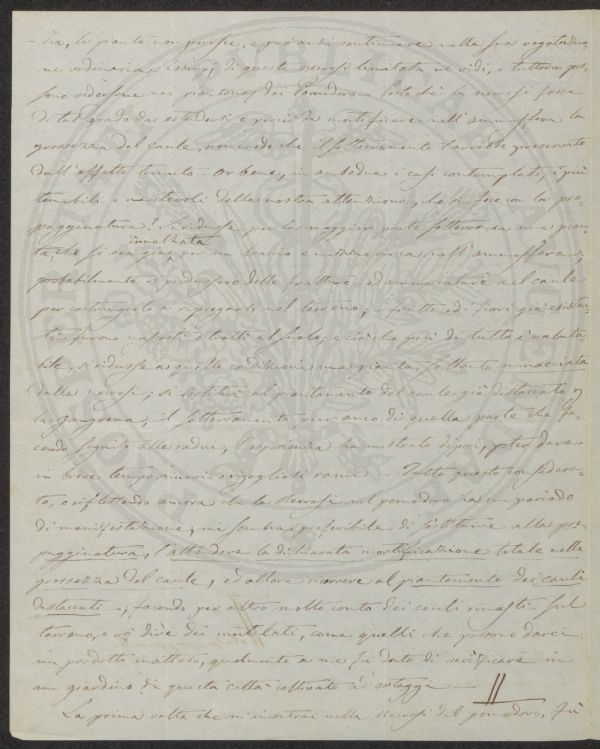 la pianta non perisce, e può anzi continuare nella sua vegetazio
ne ordinaria. Esempj di questa necrosi limitata ne vidi, e tuttora pos
sono vedersene nei piantonaj dei Pomodoro. Postochè la necrosi fosse
di tal grado da estendersi e perciò da mortificare nell'ammosfera la
grossezza del caule, non credo che il sotterramento l'avrebbe preservato
dall'effetto temuto. Or bene, in ambedue i casi contemplati, i più
temibili e meritevoli della nostra attenzione, che si fece con la pro
pagginatura? Si ridusse per la maggior parte sotterranea una pian
innalzata
ta, che si era già per un braccio e mezzo circa nell'ammosfera,
probabilmente si produssero delle fratture ed ammaccature nel caule
per costringerlo a ripiegarsi nel terreno; i frutti ed i fiori già esisten
ti furono nascosti o tratti al suolo, e ciò che più di tutto è valuta
bile, si ridusse a quelle condizioni una pianta, soltanto minacciata
dalla necrosi; si sostituì al piantamento del caule già distaccato
la gangrena, il sotterramento pur anco di quella parte che fa
cendo seguito alle radici, l'esperienza ha mostrato dipoi, poter dare
in breve tempo nuovi e rigogliosi rami. Tutto questo considera
to, e riflettendo ancora che la Necrosi nel pomodoro ha un periodo
di manifestazione, mi sembra preferibile di sostituire alla pro
pagginatura, l'attendere la dichiarata mortificazione totale nella
grossezza del caule, ed allora ricorrere al piantamento dei cauli
distaccati; facendo per altro molto conto dei cauli rimasti sul
terreno, e vo' dire dei mutilati, come quelli che possono darci
un prodotto inatteso, qualmente a me fu dato di verificare in
un giardino di questa città coltivato ad ortaggi
La prima volta che m'incontrai nella Necrosi del pomodoro, fù